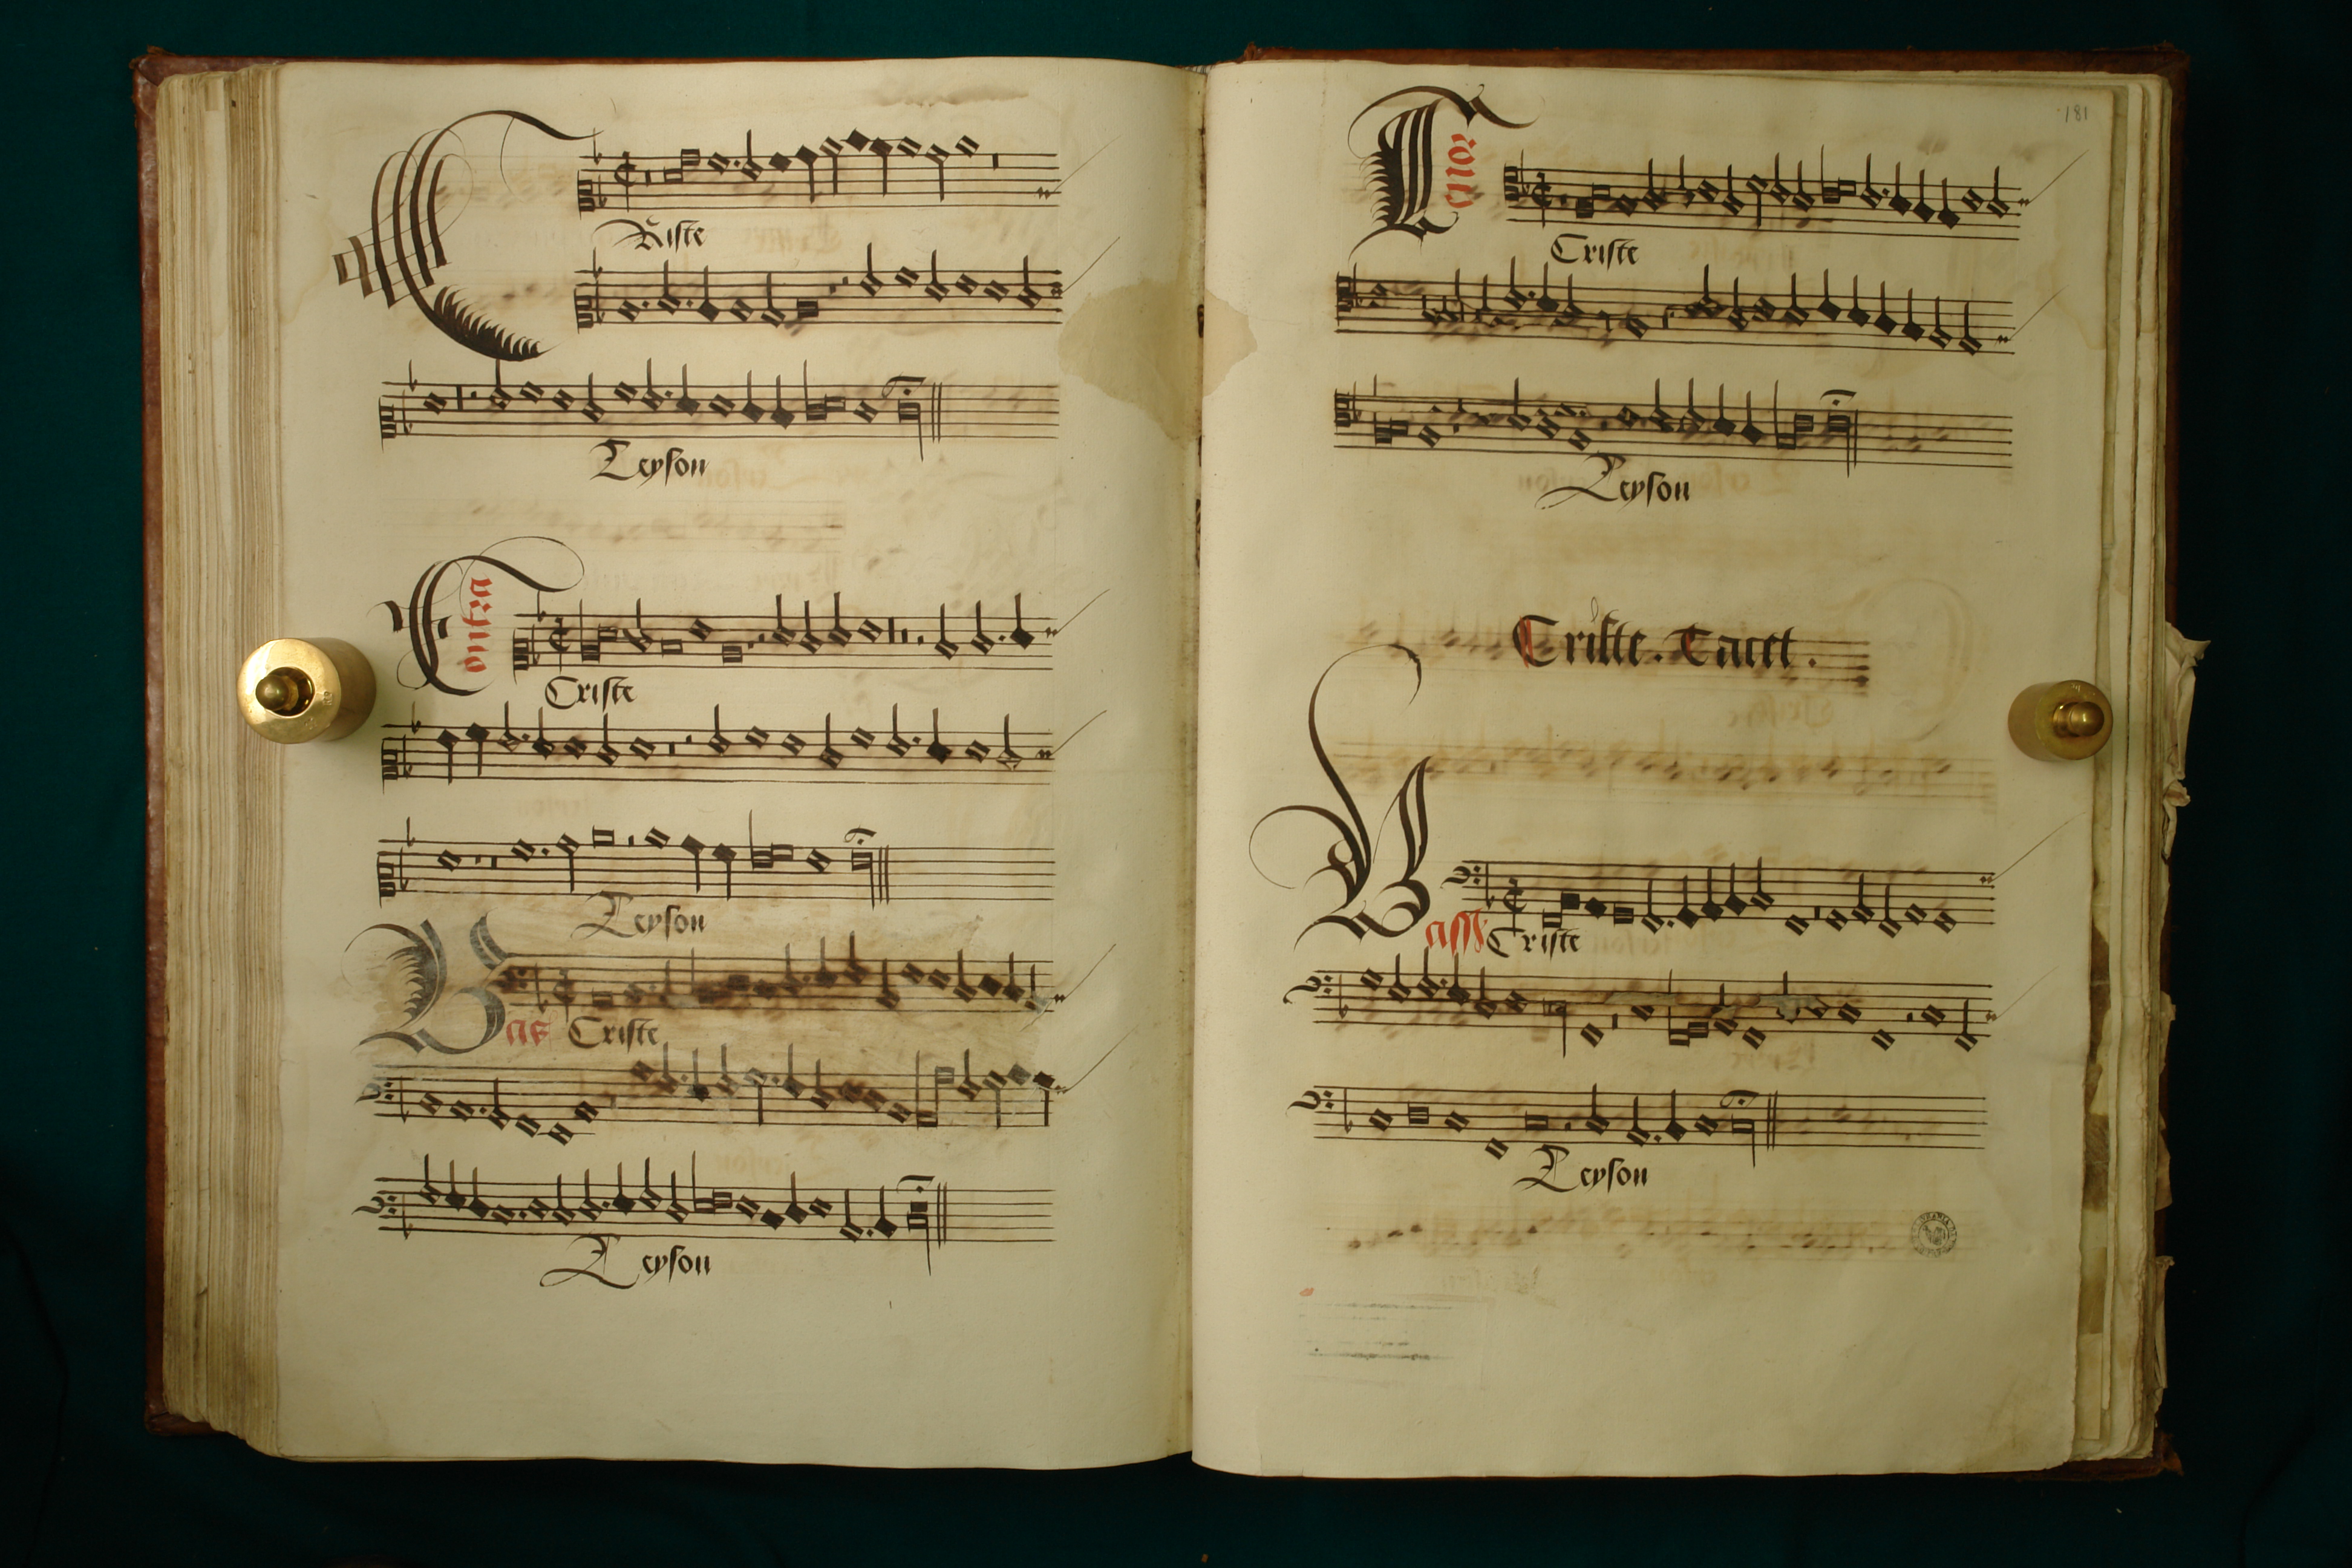 CRiste
Leyson
Contra
Criste
Leyson
Bas
Criste
Leyson
181
Tenor
Criste
Leyson
Criste. Tacet.
Bassus
Criste
Leyson